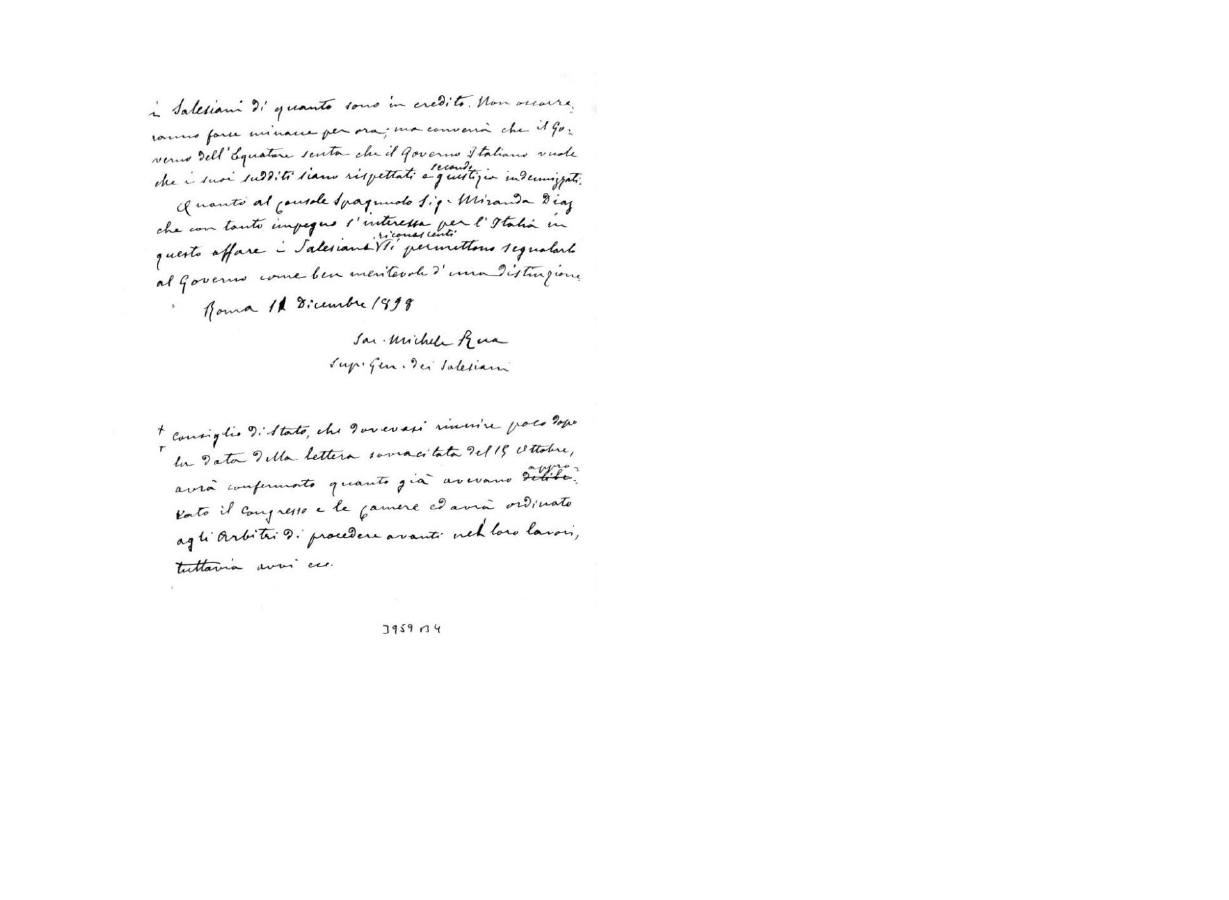 i Salesiani di quanto sono in credito. Non occorre-
ranno forse minacce per ora; ma converrà che il Go-
verno dell'Equatore senta che il Governo Italiano vuole
che i suoi sudditi siano rispettati e secondo giustizia indennizzati.
Quanto al console Spagnuolo Sig. Miranda Diaz
che con tanto impegno s'interessa per l'Italia in
questo affare i Salesiani riconoscenti si permettono segnalarlo
al Governo come ben meritevole d'una distinzione
Roma 11 Dicembre 1898
Sac. Michele Rua
Sup. Gen. dei Salesiani
+ Consiglio di Stato, che dovevasi riunire poco dopo
la data della lettera sovracitata del 15 Ottobre,
avrà confermato quanto già avevano delibe- appro-
vato il Congresso e le Camere ed avrà ordinato
agli Arbitri di procedere avanti nel loro lavori,
tuttavia avvi ecc.
3959 B4